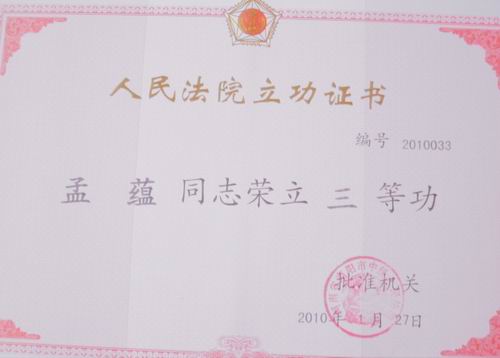 人民法院立功证书
编号 2010033
孟 蕴 同志荣立 三 等功
批准机关
2010年 1月 27日